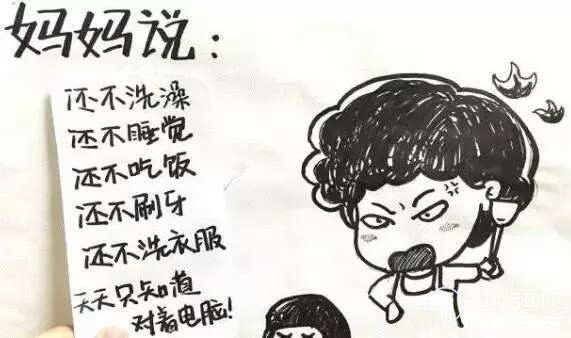 妈妈说：
还不洗澡
还不睡觉
还不吃饭
还不刷牙
还不洗衣服
天天只知道
对着电脑！